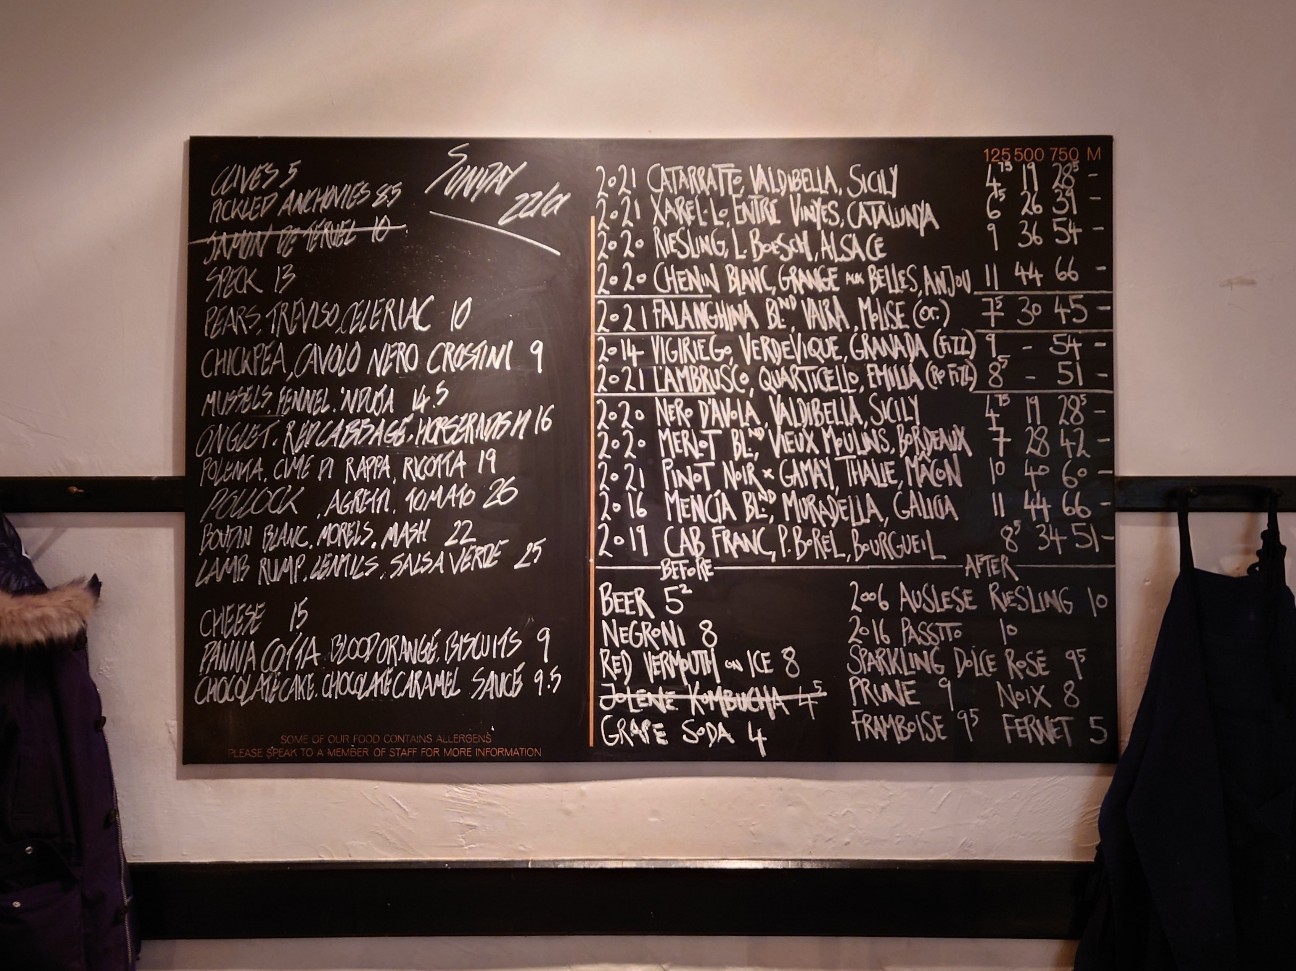 OLIVES 5
PICKLED ANCHOVIES 8.5
JAMON DE TERUEL 10
SPECK 13
PEARS, TREVISO, CELERIAC 10
CHICKPEA, CAVOLO NERO CROSTINI 9
MUSSELS, FENNEL, 'NDUJA 14.5
ONGLET, RED CABBAGE, HORSERADISH 16
POLENTA, CIME DI RAPPA, RICOTTA 19
POLLOCK, AGRETTI, TOMATO 26
BOUDIN BLANC, MORELS, MASH 22
LAMB RUMP, LENTILS, SALSA VERDE 25
CHEESE 15
PANNA COTTA, BLOOD ORANGE, BISCUITS 9
CHOCOLATE CAKE, CHOCOLATE CARAMEL SAUCE 9.5
SOME OF OUR FOOD CONTAINS ALLERGENS
PLEASE SPEAK TO A MEMBER OF STAFF FOR MORE INFORMATION
SUNDAY
22/01
125 500 750 M
2021 CATARRATTO, VALDIBELLA, SICILY 4.75 19 28.5 -
2021 XAREL·LO, ENTRE VINYES, CATALUNYA 6.5 26 39 -
2020 RIESLING, L. BOESCH, ALSACE 9 36 54 -
2020 CHENIN BLANC, GRANGE AUX BELLES, ANJOU 11 44 66 -
2021 FALANGHINA BLND, VAIRA, MOLISE (OR.) 7.5 30 45 -
2014 VIGIRIEGO, VERDEVIQUE, GRANADA (FIZZ) 9 - 54 -
2021 LAMBRUSCO, QUARTICELLO, EMILIA (RO FIZZ) 8.5 - 51 -
2020 NERO D'AVOLA, VALDIBELLA, SICILY 4.75 19 28.5 -
2020 MERLOT BLND, VIEUX MOULINS, BORDEAUX 7 28 42 -
2021 PINOT NOIR × GAMAY, THALIE, MÂCON 10 40 60 -
2016 MENCÍA BLND, MURADELLA, GALICIA 11 44 66 -
2019 CAB FRANC, P. BOREL, BOURGUEIL 8.5 34 51 -
BEFORE
BEER 5.2
NEGRONI 8
RED VERMOUTH ON ICE 8
JOLENE KOMBUCHA 4.5
GRAPE SODA 4
AFTER
2006 AUSLESE RIESLING 10
2016 PASSITO 10
SPARKLING DOLCE ROSE 9.5
PRUNE 9 NOIX 8
FRAMBOISE 9.5 FERNET 5